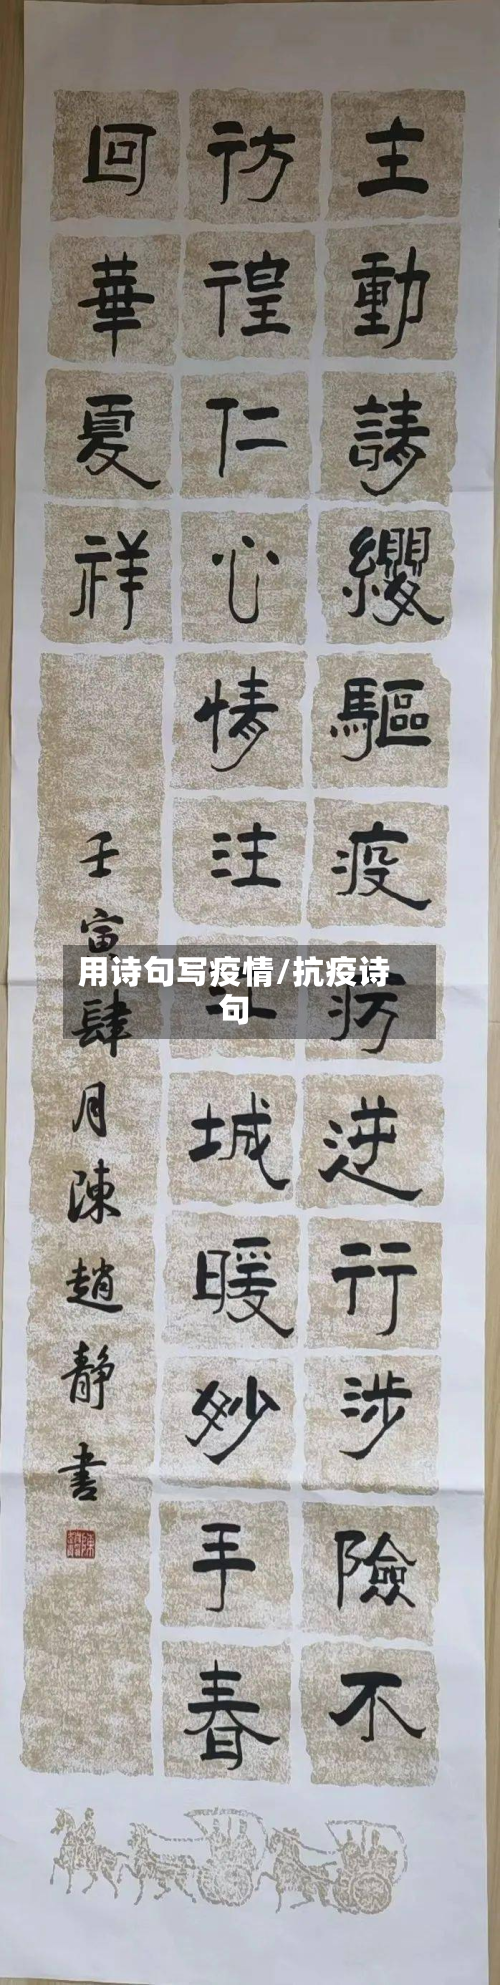 主動請纓驅疫疠逆行涉險不
彷徨仁心情注城暖妙手春
回華夏祥
壬寅肆月陳趙靜書
用诗句写疫情/抗疫诗
句